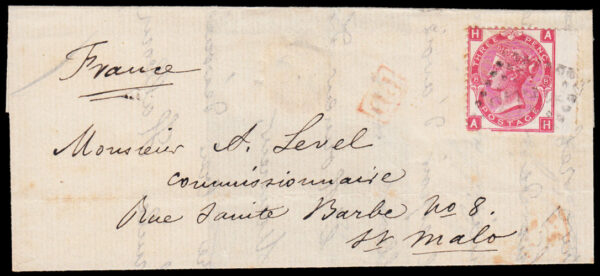 France
H A
THREE PENCE
POSTAGE
A H
P.D.
Monsieur A. Level
Commissionnaire
Rue Sainte Barbe No 8.
St Malo